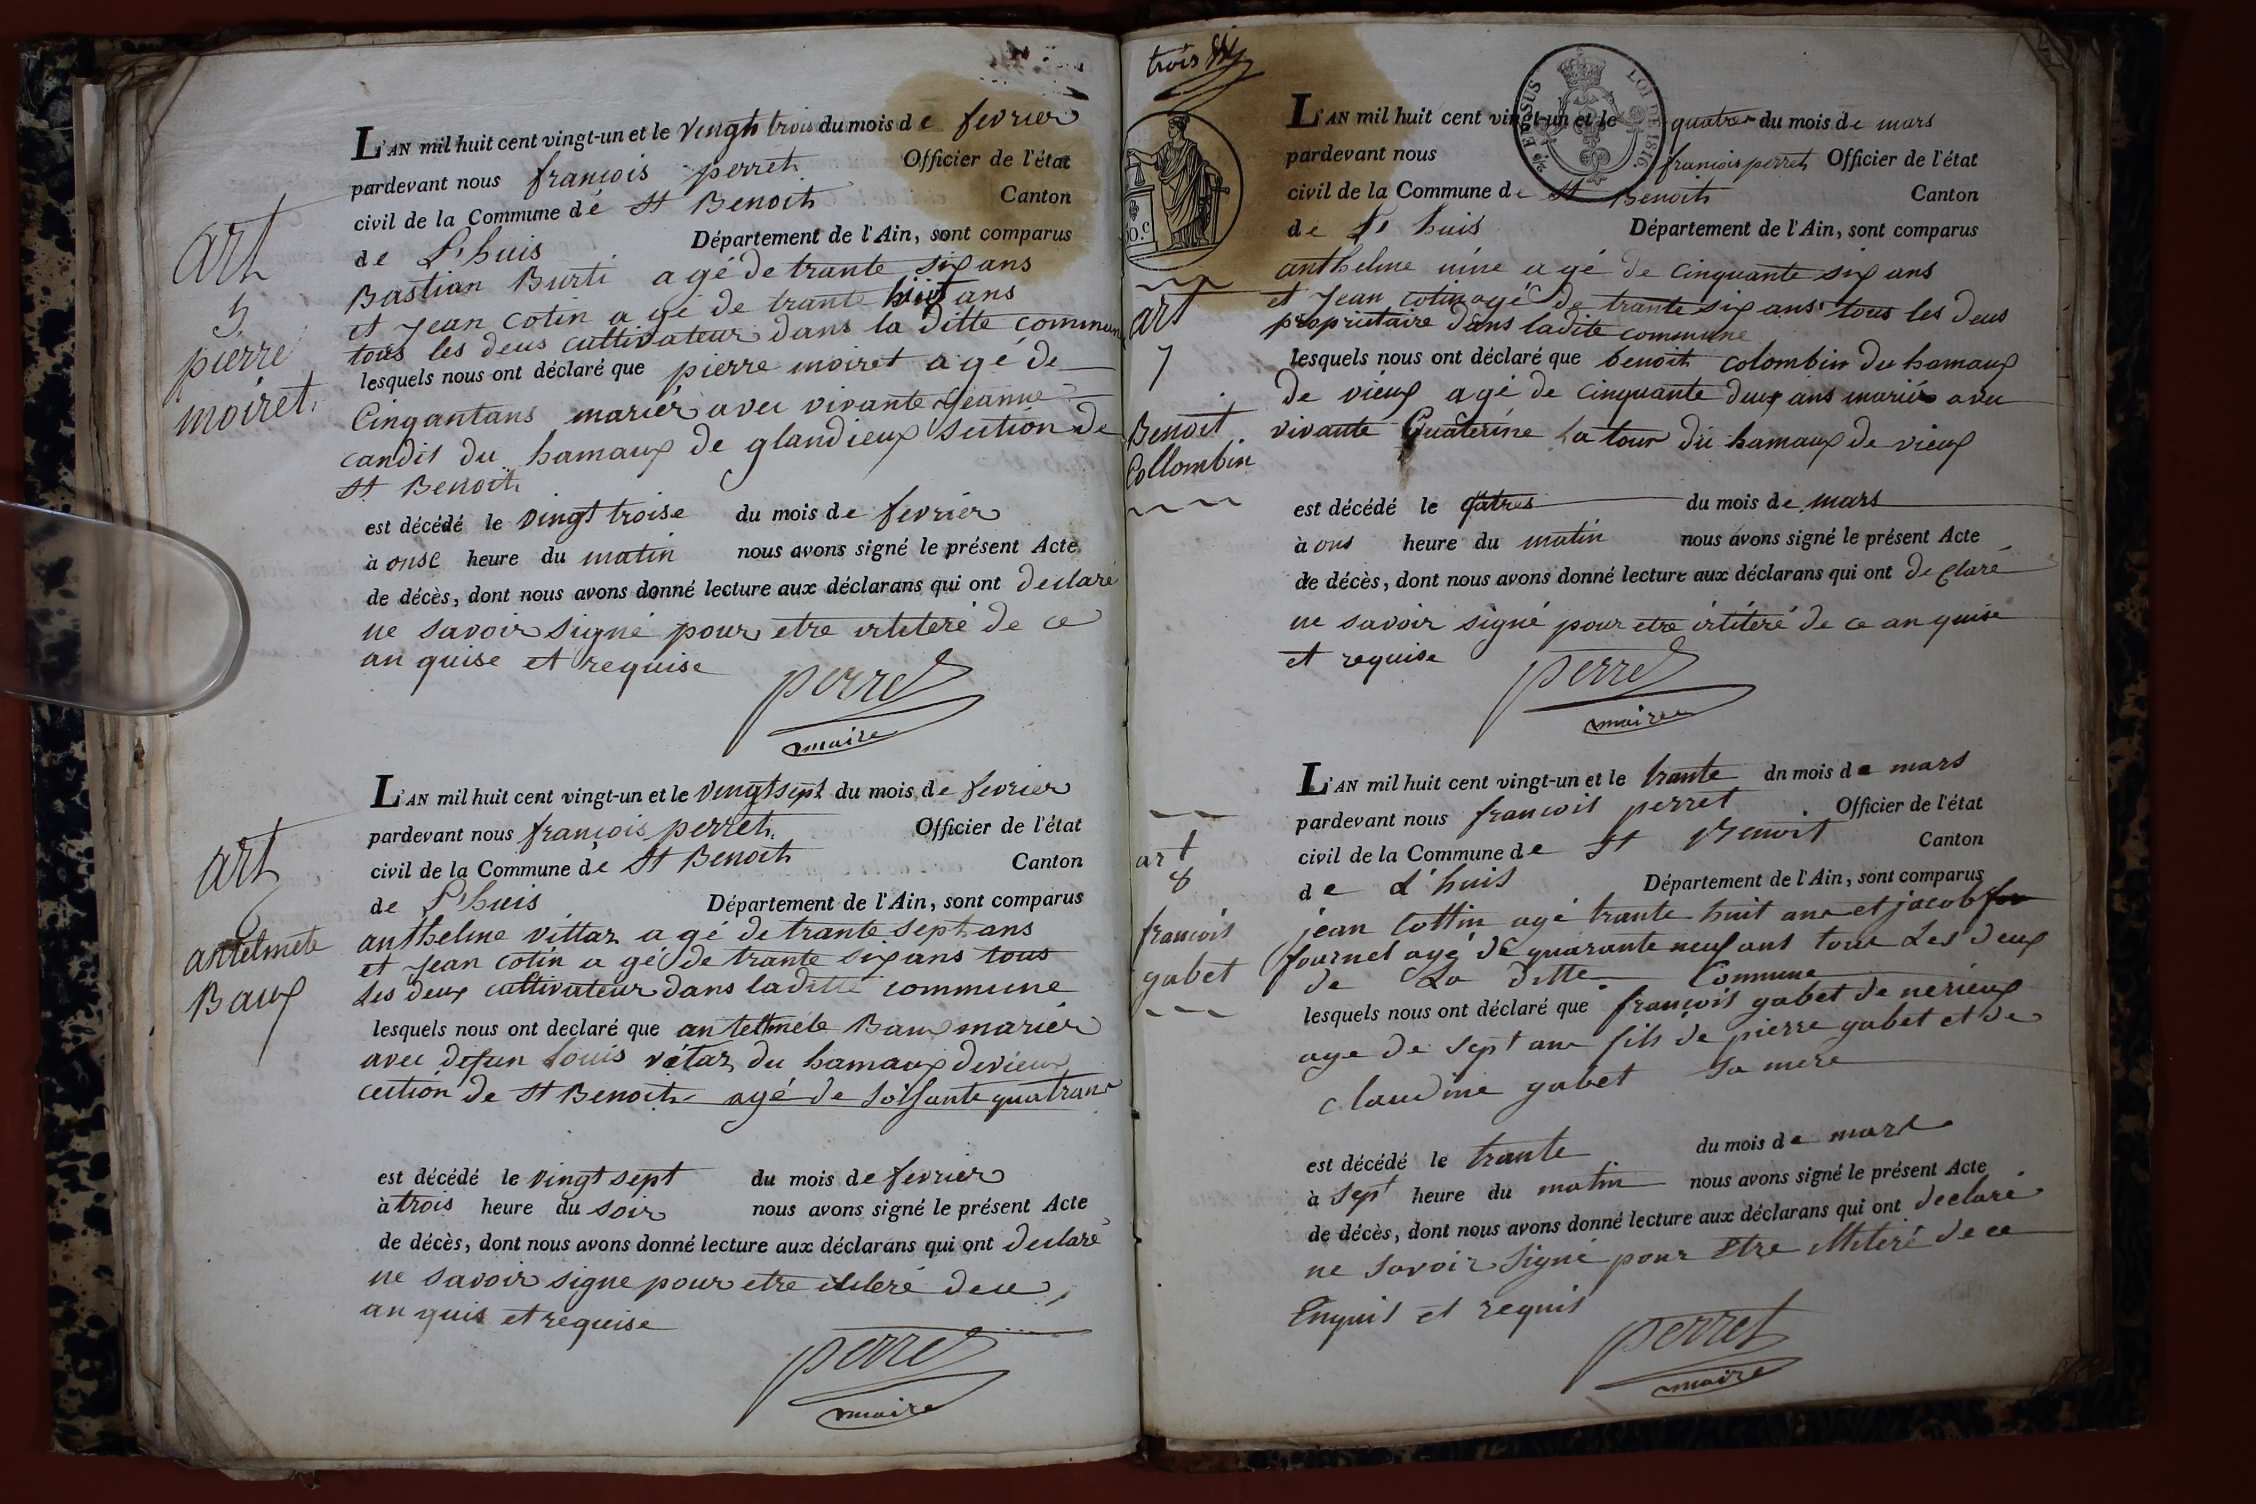 L'AN mil huit cent vingt-un et le vingt trois du mois de fevrier
pardevant nous francois perret Officier de l'état
civil de la Commune de St Benoit Canton
de L'huis Département de l'Ain, sont comparus
Bastian Burti agé de trante six ans
et Jean Cotin a gé de trante huit ans
tous les deus cultivateur dans la ditte commun
lesquels nous ont déclaré que pierre moiret agé de
Cinqantans mariér avec vivante Jeanne
candit du hamaux de glandieux section de
St Benoit
est décédé le vingt troise du mois de fevrier
à onse heure du matin nous avons signé le présent Acte
de décès, dont nous avons donné lecture aux déclarans qui ont declaré
ne savoir signé pour etre de ce
an quise et requise
perret
maire
art
5
pierre
moiret
L'AN mil huit cent vingt-un et le vingt sept du mois de fevrier
pardevant nous francois perret Officier de l'état
civil de la Commune de St Benoit Canton
de L'huis Département de l'Ain, sont comparus
anthelme vittaz a gé de trante sept ans
et Jean cotin a gé de trante six ans tous
les deux cultivateur dans laditte commune
lesquels nous ont declaré que Baux mariér
avec defun Louis vétaz du hamaux de vieux
cection de St Benoit agé de soisante quatrans
est décédé le vingt sept du mois de fevrier
à trois heure du soir nous avons signé le présent Acte
de décès, dont nous avons donné lecture aux déclarans qui ont declaré
ne savoir signe pour etre de ce
an quis et requise
perret
maire
art
6
Baux
trois
% EN SUS LOI DE 1816.
L'AN mil huit cent vingt-un et le quatre du mois de mars
pardevant nous francois perret Officier de l'état
civil de la Commune de St Benoit Canton
de L'huis Département de l'Ain, sont comparus
anthelme nine agé de cinquante six ans
et Jean cotin agé de trante six ans tous les deus
propriétaire dans ladite commune
lesquels nous ont déclaré que benoit colombin du hamaux
de vieux agé de cinquante deux ans mariér avec
vivante Cuaterine La tour du hamaux de vieux
est décédé le qatres du mois de mars
à ons heure du matin nous avons signé le présent Acte
de décès, dont nous avons donné lecture aux déclarans qui ont declaré
ne savoir signé pour etre de ce an quise
et requise
perret
maire
art
7
Benoit
Collombin
L'AN mil huit cent vingt-un et le trante dn mois de mars
pardevant nous francois perret Officier de l'état
civil de la Commune de St Benoit Canton
de L'huis Département de l'Ain, sont comparus
jean Cottin agé trante huit ans et jacob
fournet agé de quarante neuf ans tous Les deux
de La ditte Commune
lesquels nous ont déclaré que françois gabet de nerieux
age de sept ans fils de pierre gabet et de
claudine gabet sa mere
est décédé le trante du mois de mars
à sept heure du matin nous avons signé le présent Acte
de décès, dont nous avons donné lecture aux déclarans qui ont declaré
ne savoir signé pour Etre illiteré de ce
Enquis et requis
perret
maire
art
8
francois
gabet